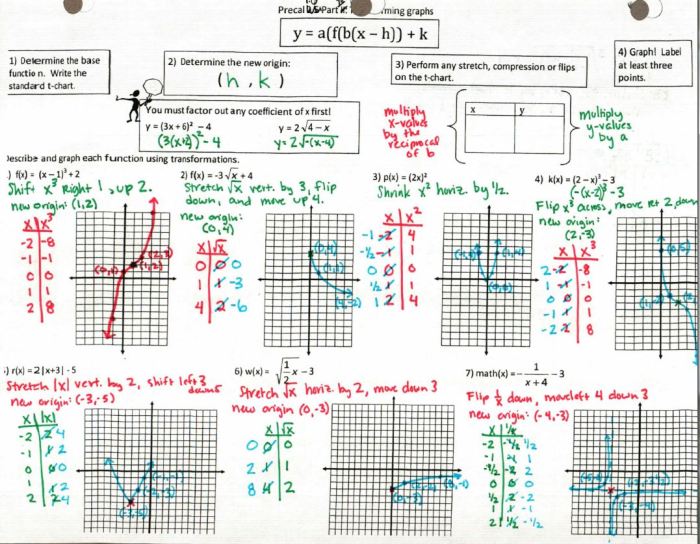 Precal
ming graphs
y = a(f(b(x − h)) + k
1) Determine the base
functio n. Write the
standard t-chart.
2) Determine the new origin:
(h, k)
3) Perform any stretch, compression or flips
on the t-chart.
4) Graph! Label
at least three
points.
You must factor out any coefficient of x first!
y = (3x + 6)² − 4
(3(x+2))² − 4
y = 2√4 − x
y = 2√-(x-4)
multiply
x-values
by the
reciprocal
of b
x y
multiply
y-values
by a
Describe and graph each function using transformations.
.) f(x) = (x − 1)³ + 2
Shift x³ Right 1, up 2.
new origin: (1,2)
x x³
-2 -8
-1 -1
0 0
1 1
2 8
(0,1)
(1,2)
(2,3)
2) f(x) = -3√x + 4
Stretch √x vert. by 3, flip
down, and move up 4.
new origin:
(0,4)
x √x
0 0 0
1 1 -3
4 2 -6
(0,4)
(1,1)
(4,-2)
3) p(x) = (2x)²
Shrink x² horiz. by ½.
x x²
-1 -2 4
-½ -1 1
0 0 0
½ 1 1
1 2 4
(0,0)
4) k(x) = (2 − x)³ − 3
(-(x-2))³ - 3
Flip x³ across, move rt 2, down
new origin:
(2,-3)
x x³
2 -2 -8
1 -1 -1
0 0 0
-1 1 1
-2 2 8
(0,5)
:) r(x) = 2|x+3| - 5
Stretch |x| vert. by 2, shift left 3
down 5
new origin: (-3,-5)
x |x|
-2 2 4
-1 1 2
0 0 0
1 1 2
2 2 4
(-3,-5)
6) w(x) = √1/2 x − 3
Stretch √x horiz. by 2, move down 3
new origin (0,-3)
x √x
0 0 0
2 1 1
8 4 2
(0,-3)
(8,-1)
7) math(x) = − 1/x + 4 − 3
Flip 1/x down, move left 4 down 3
new origin: (-4,-3)
x 1/x
-2 -½ ½
-1 -1 1
-½ -2 2
0 0 0
½ 2 -2
1 1 -1
2 ½ -½